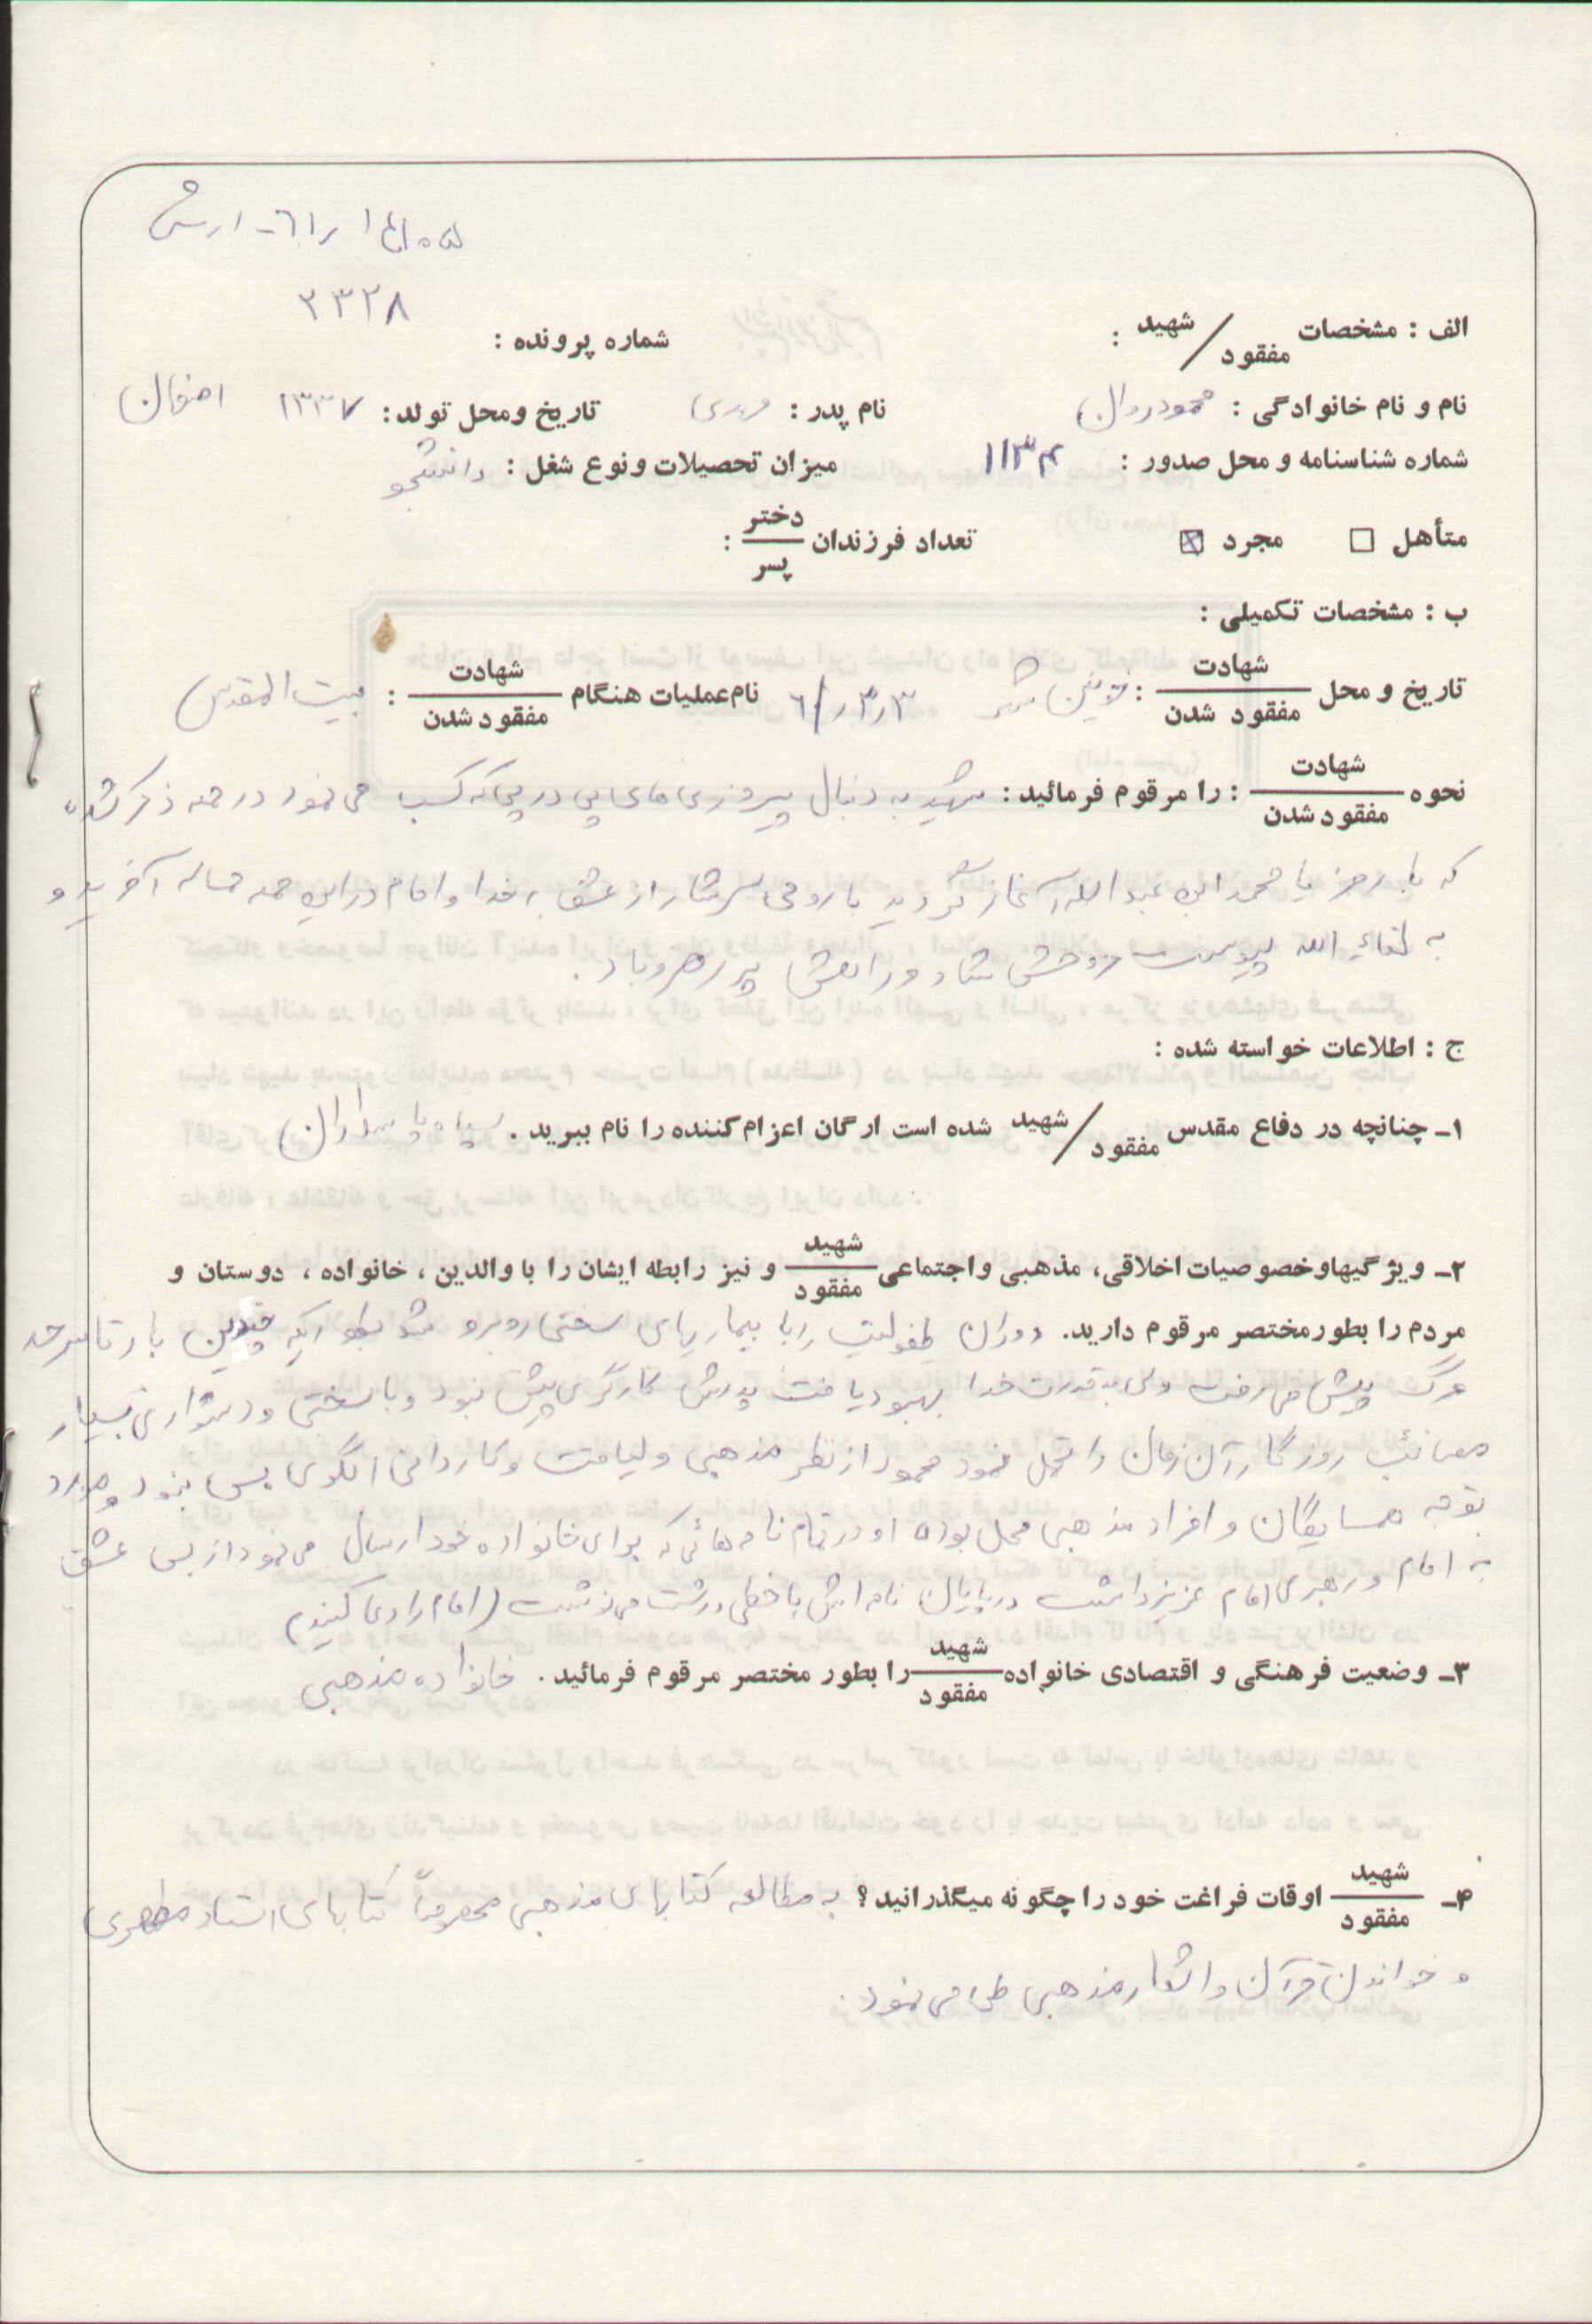 ۲۳۲۸
الف : مشخصات شهید / مفقود :
شماره پرونده :
نام و نام خانوادگی : محمود نام پدر : مهدی تاریخ ومحل تولد : ۱۳۳۷ اصفهان
شماره شناسنامه و محل صدور : ۱۱۳۴ میزان تحصیلات ونوع شغل : دانشجو
متأهل مجرد تعداد فرزندان دختر / پسر :
ب : مشخصات تکمیلی :
تاریخ و محل شهادت / مفقود شدن : خونین شهر ۶۱/۳/۳ نام عملیات هنگام شهادت / مفقود شدن : بیت المقدس
نحوه شهادت / مفقود شدن : را مرقوم فرمائید : شهید به دنبال پیروزی های پی در پی که کسب می نمود در حمله ذکر شده
که با رمز یا محمد ابن عبدالله آغاز گردید با روحی سرشار از عشق به خدا و امام در این حمله حماسه آفرید و
به لقاء الله پیوست روحش شاد و راهش پر رهرو باد .
ج : اطلاعات خواسته شده :
۱ـ چنانچه در دفاع مقدس شهید / مفقود شده است ارگان اعزام کننده را نام ببرید . سپاه پاسداران
۲ـ ویژگیهاوخصوصیات اخلاقی، مذهبی واجتماعی شهید / مفقود و نیز رابطه ایشان را با والدین ، خانواده ، دوستان و
مردم را بطورمختصر مرقوم دارید. دوران طفولیت را با بیماریهای سختی روبرو شد بطوریکه چندین بار تا سرحد
مرگ پیش می رفت ولی به قدرت خدا بهبود یافت پدرش کارگری بیش نبود و با سختی و دشواری بسیار
مصائب روزگار آن زمان را تحمل نمود محمود از نظر مذهبی و لیاقت و کاردانی الگوی بس بود و مورد
توجه همسایگان و افراد مذهبی محل بوده او در تمام نامه هائی که برای خانواده خود ارسال می نمود از بس عشق
به امام و رهبری امام عزیز داشت در پایان نامه اش با خطی درشت می نوشت (امام را دعا کنید)
۳ـ وضعیت فرهنگی و اقتصادی خانواده شهید / مفقود را بطور مختصر مرقوم فرمائید . خانواده مذهبی
۴ـ شهید / مفقود اوقات فراغت خود را چگونه میگذرانید ؟ به مطالعه کتابهای مذهبی مخصوصاً کتابهای استاد مطهری
و خواندن قرآن و اشعار مذهبی طی می نمود .